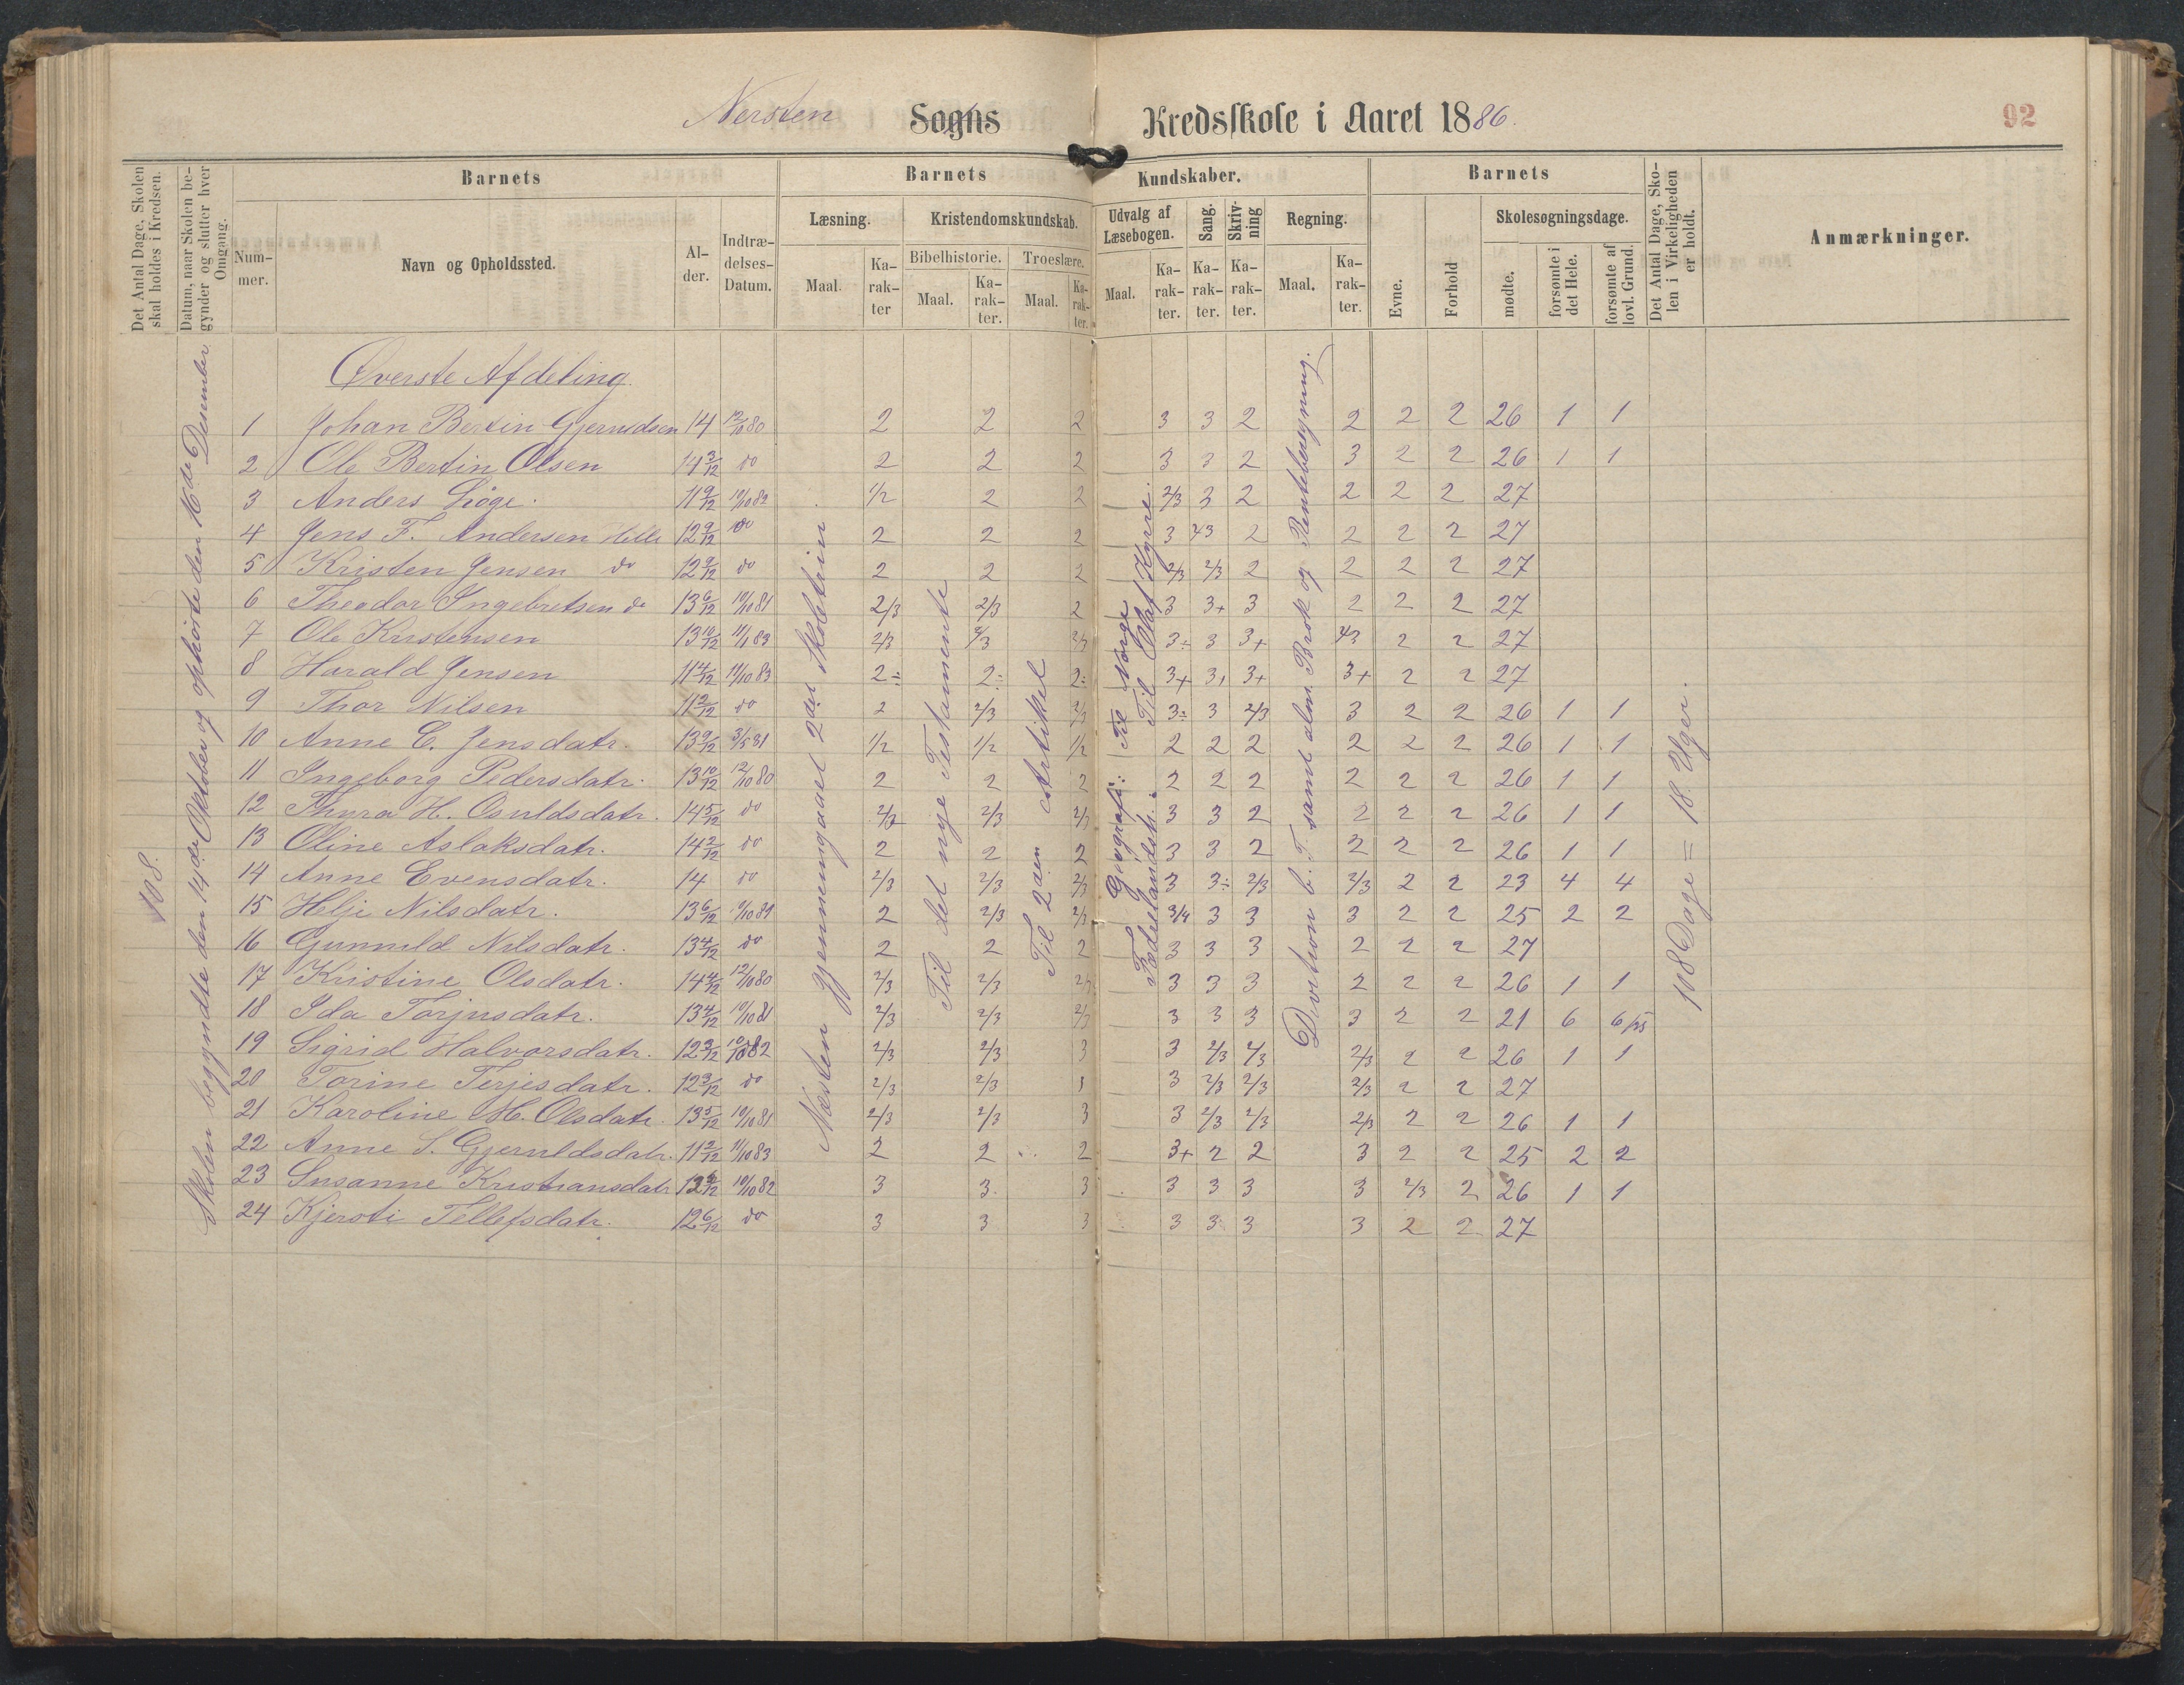 Nersten Sogns Kredsskole i Aaret 1886.
92
Det Antal Dage, Skolen skal holdes i Kredsen.
Datum, naar Skolen begynder og slutter hver Omgang.
Barnets
Nummer.
Navn og Opholdssted.
Alder.
Indtrædelses-Datum.
Barnets Kundskaber.
Læsning.
Maal.
Karakter
Kristendomskundskab.
Bibelhistorie.
Maal.
Karakter.
Troeslære.
Maal.
Karakter.
Udvalg af Læsebogen.
Maal.
Karakter.
Sang.
Karakter.
Skrivning
Karakter.
Regning.
Maal.
Karakter.
Barnets
Evne.
Forhold
Skolesøgningsdage.
mødte.
forsømte i det Hele.
forsømte af lovl. Grund.
Det Antal Dage, Skolen i Virkeligheden er holdt.
Anmærkninger.
108.
Skolen begyndte den 14de Oktober og ophørte den 16de Desember
Øverste Afdeling.
1 Johan Bertin Gjeruldsen 14 12/10 80 2 2 2 3 3 2 2 2 2 26 1 1
2 Ole Bertin Olsen 14 3/12 do 2 2 2 3 3 2 3 2 2 26 1 1
3 Anders Løge. 11 9/12 10/10 82 1/2 2 2 2/3 3 2 2 2 2 27
4 Jens F. Andersen 12 9/12 do 2 2 2 3 2/3 2 2 2 2 27
5 Kristen Jensen do 12 9/12 do 2 2 2 2/3 2/3 2 2 2 2 27
6 Theodor Ingebretsen do 13 6/12 10/10 81 2/3 2/3 2 3 3+ 3 2 2 2 27
7 Ole Kristensen 13 10/12 11/1 83 2/3 2/3 2/3 3÷ 3 3+ 2/3 2 2 27
8 Harald Jensen 11 4/12 11/10 83 2÷ 2÷ 2÷ 3+ 3+ 3+ 3+ 2 2 27
9 Thor Nilsen 11 2/12 do 2 2/3 2/3 3÷ 3 2/3 3 2 2 26 1 1
10 Anne C. Jensdatr. 13 9/12 3/5 81 1/2 1/2 1/2 2 2 2 2 2 2 26 1 1
11 Ingeborg Pedersdatr. 13 10/12 12/10 80 2 2 2 2 2 2 2 2 2 26 1 1
12 Thora H. Osuldsdatr. 14 5/12 do 2/3 2/3 2/3 3 3 2 2 2 2 26 1 1
13 Oline Aslaksdatr. 14 2/12 do 2 2 2 3 3 2 2 2 2 26 1 1
14 Anne Evensdatr. 14 do 2/3 2/3 2/3 3 3÷ 2/3 2/3 2 2 23 4 4
15 Helje Nilsdatr. 13 6/12 10/10 81 2 2/3 2/3 3/4 3 3 3 2 2 25 2 2
16 Gunnild Nilsdatr. 13 4/12 do 2 2 2 3 3 3 2 2 2 27
17 Kristine Olsdatr. 14 4/12 12/10 80 2/3 2/3 2/3 3 3 3 2 2 2 26 1 1
18 Ida Torjusdatr. 13 4/12 10/10 81 2/3 2/3 2/3 3 3 3 3 2 2 21 6 6
19 Sigrid Halvorsdatr. 12 3/12 10/10 82 2/3 2/3 3 3 2/3 2/3 2/3 2 2 26 1 1
20 Torine Terjesdatr. 12 3/12 do 2/3 2/3 1 3 2/3 2/3 2/3 2 2 27
21 Karoline M. Olsdatr. 13 5/12 10/10 81 2/3 2/3 3 3 2/3 2/3 2/3 2 2 26 1 1
22 Anne S. Gjeruldsdatr. 11 2/12 11/10 83 2 2 2 3+ 2 2 3 2 2 25 2 2
23 Susanne Kristiansdatr 12 6/12 10/10 82 3 3 3 3 3 3 3 2/3 2 26 1 1
24 Kjersti Tellefsdatr. 12 6/12 do 3 3 3 3 3 3 3 2 2 27
Næsten gjennemgaaet 2det Skoletrin.
Til det nye Testamente
Til 2den Artikkel
Geografi: Til Norge
Fædrelandsh.: Til Olaf Kyrre.
Division b. T. samt alm. Brøk og Renteberegning.
108 Dage = 18 Uger.